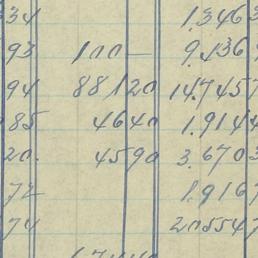 34 1.3463
93 100— 9.4369
94 88120 14.7457
85 4640 1.9144
20. 4590 3.6703
72 1.9167
74 205547